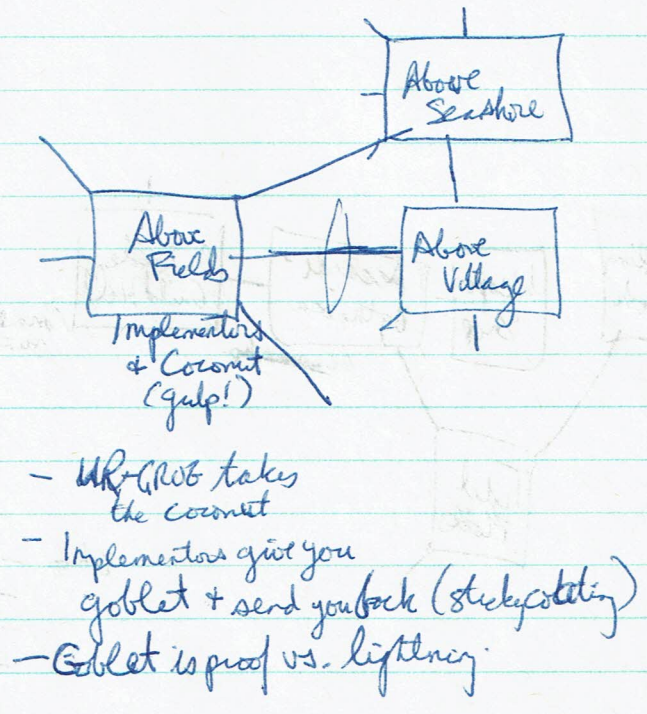 Above
Seashore
Above
Fields
Above
Village
Implementors
& Coconut
(gulp!)
- UR-GRUE takes
the coconut
- Implementors give you
goblet + send you back (sticky coating)
- Goblet is proof vs. lightning.